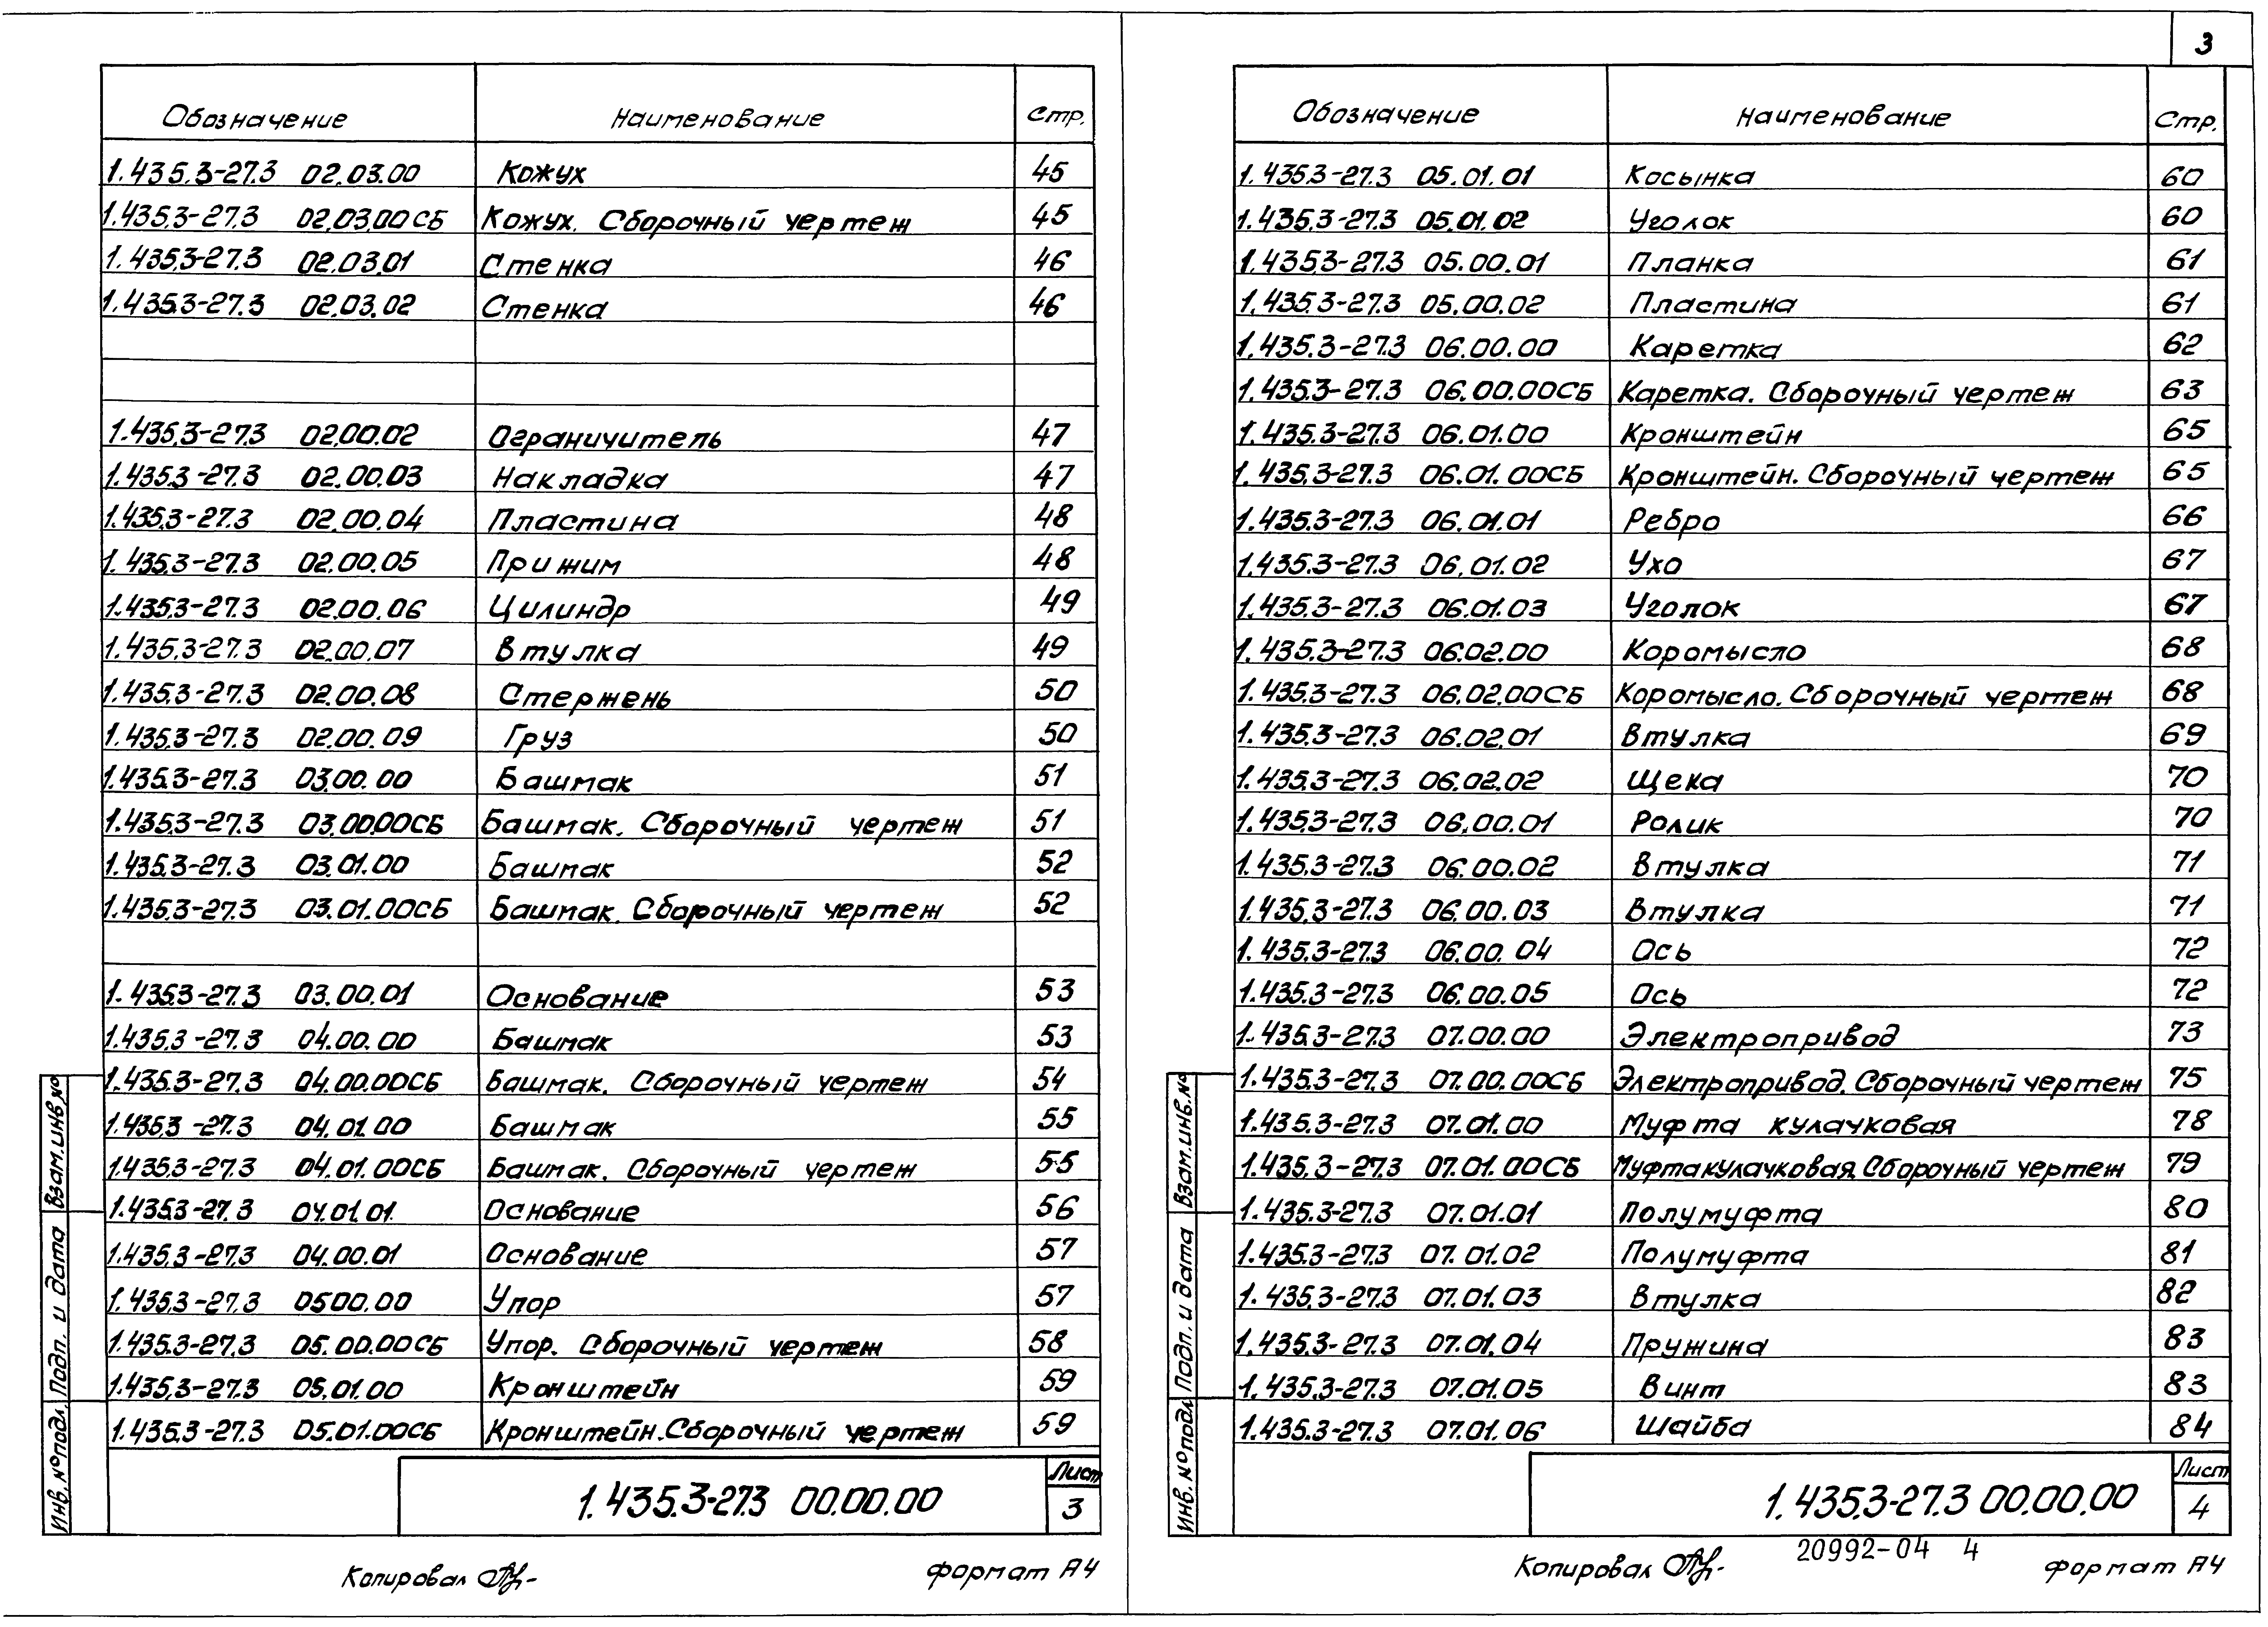 3
Обозначение Наименование Стр.
1.435.3-27.3 02.03.00 Кожух 45
1.435.3-27.3 02.03.00СБ Кожух. Сборочный чертеж 45
1.435.3-27.3 02.03.01 Стенка 46
1.435.3-27.3 02.03.02 Стенка 46
1.435.3-27.3 02.00.02 Ограничитель 47
1.435.3-27.3 02.00.03 Накладка 47
1.435.3-27.3 02.00.04 Пластина 48
1.435.3-27.3 02.00.05 Прижим 48
1.435.3-27.3 02.00.06 Цилиндр 49
1.435.3-27.3 02.00.07 Втулка 49
1.435.3-27.3 02.00.08 Стержень 50
1.435.3-27.3 02.00.09 Груз 50
1.435.3-27.3 03.00.00 Башмак 51
1.435.3-27.3 03.00.00СБ Башмак. Сборочный чертеж 51
1.435.3-27.3 03.01.00 Башмак 52
1.435.3-27.3 03.01.00СБ Башмак. Сборочный чертеж 52
1.435.3-27.3 03.00.01 Основание 53
1.435.3-27.3 04.00.00 Башмак 53
1.435.3-27.3 04.00.00СБ Башмак. Сборочный чертеж 54
1.435.3-27.3 04.01.00 Башмак 55
1.435.3-27.3 04.01.00СБ Башмак. Сборочный чертеж 55
1.435.3-27.3 04.01.01. Основание 56
1.435.3-27.3 04.00.01 Основание 57
1.435.3-27.3 0500.00 Упор 57
1.435.3-27.3 05.00.00СБ Упор. Сборочный чертеж 58
1.435.3-27.3 05.01.00 Кронштейн 59
1.435.3-27.3 05.01.00СБ Кронштейн.Сборочный чертеж 59
Взам.инв.№
Подп. и дата
Инв.№подл.
1.435.3-27.3 00.00.00
Лист
3
Копировал
формат А4
Обозначение Наименование Стр.
1.435.3-27.3 05.01.01 Косынка 60
1.435.3-27.3 05.01.02 Уголок 60
1.435.3-27.3 05.00.01 Планка 61
1.435.3-27.3 05.00.02 Пластина 61
1.435.3-27.3 06.00.00 Каретка 62
1.435.3-27.3 06.00.00СБ Каретка. Сборочный чертеж 63
1.435.3-27.3 06.01.00 Кронштейн 65
1.435.3-27.3 06.01.00СБ Кронштейн. Сборочный чертеж 65
1.435.3-27.3 06.01.01 Ребро 66
1.435.3-27.3 06.01.02 Ухо 67
1.435.3-27.3 06.01.03 Уголок 67
1.435.3-27.3 06.02.00 Коромысло 68
1.435.3-27.3 06.02.00СБ Коромысло. Сборочный чертеж 68
1.435.3-27.3 06.02.01 Втулка 69
1.435.3-27.3 06.02.02 Щека 70
1.435.3-27.3 06.00.01 Ролик 70
1.435.3-27.3 06.00.02 Втулка 71
1.435.3-27.3 06.00.03 Втулка 71
1.435.3-27.3 06.00.04 Ось 72
1.435.3-27.3 06.00.05 Ось 72
1.435.3-27.3 07.00.00 Электропривод 73
1.435.3-27.3 07.00.00СБ Электропривод. Сборочный чертеж 75
1.435.3-27.3 07.01.00 Муфта кулачковая 78
1.435.3-27.3 07.01.00СБ Муфта кулачковая. Сборочный чертеж 79
1.435.3-27.3 07.01.01 Полумуфта 80
1.435.3-27.3 07.01.02 Полумуфта 81
1.435.3-27.3 07.01.03 Втулка 82
1.435.3-27.3 07.01.04 Пружина 83
1.435.3-27.3 07.01.05 Винт 83
1.435.3-27.3 07.01.06 Шайба 84
Взам.инв.№
Подп. и дата
Инв.№подл.
1.435.3-27.3 00.00.00
Лист
4
Копировал
20992-04 4
формат А4